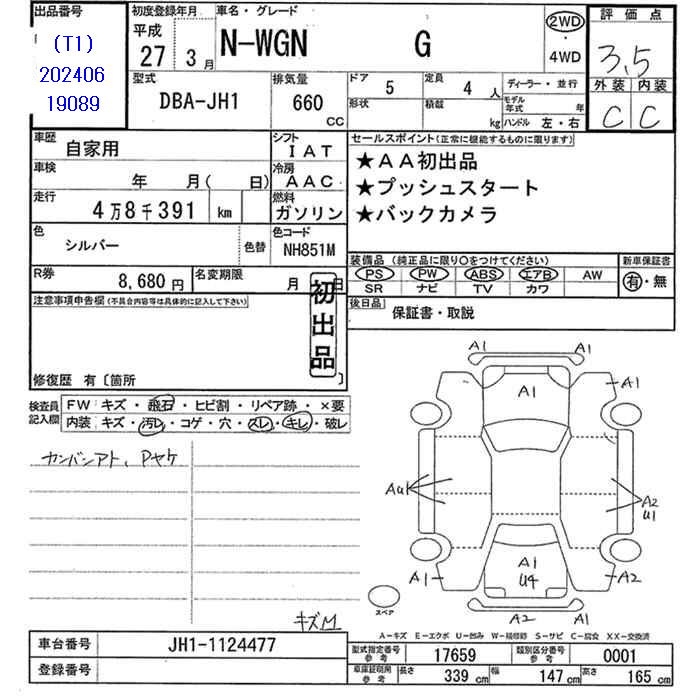 出品番号
(T1)
202406
19089
初度登録年月
平成
27 3月
車名・グレード
N-WGN G
2WD
・
4WD
評価点
3,5
外装 内装
C C
型式
DBA-JH1
排気量
660
CC
ドア 5
定員 4人
形状
積載 kg
ディーラー・並行
モデル年式 年
ハンドル 左・右
車歴 自家用
シフト IAT
車検 年 月( 日)
冷房 AAC
走行 4万8千391 km
燃料 ガソリン
色 シルバー
色替
色コード NH851M
R券 8,680円
名変期限 月 日
セールスポイント(正常に機能するものに限ります)
★AA初出品
★プッシュスタート
★バックカメラ
装備品(純正品に限り○をつけてください)
PS PW ABS エアB AW
SR ナビ TV カワ
新車保証書
有・無
後日品
保証書・取説
注意事項申告欄(不具合内容等は具体的に記入して下さい)
初出品
修復歴 有〔箇所 〕
検査員記入欄
FW キズ・飛石・ヒビ割・リペア跡・×要
内装 キズ・汚レ・コゲ・穴・スレ・キレ・破レ
カンバンアト、Pヤケ
キズM
A1 A1
A1
A1
AU1
A2
U1
A1
U4
A1
A2
A2 A1
スペア
A-キズ E-エクボ U-凹み W-補修跡 S-サビ C-腐食 XX-交換済
車台番号 JH1-1124477
登録番号
型式指定番号参考 17659
類別区分番号参考 0001
車庫証明用参考
長さ 339 cm
幅 147 cm
高さ 165 cm